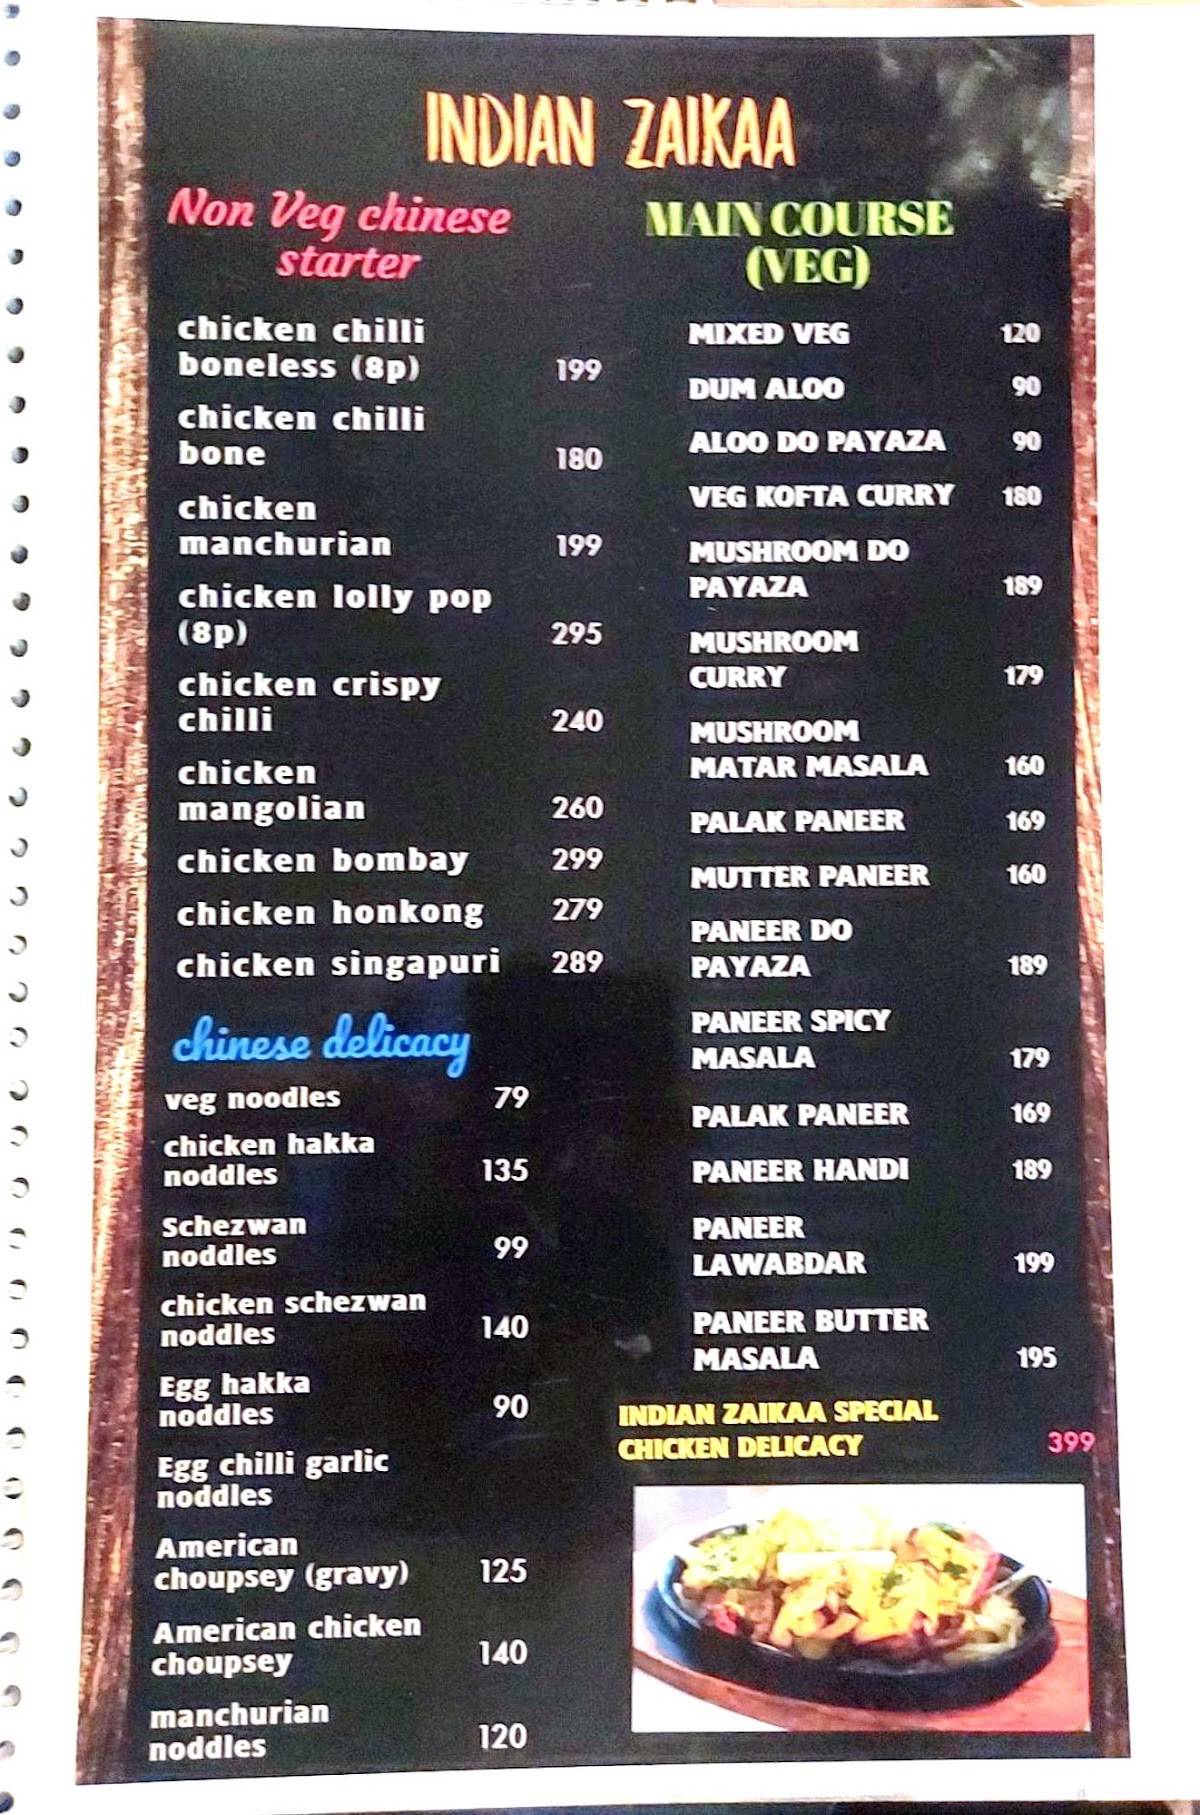 INDIAN ZAIKAA
Non Veg chinese
starter
chicken chilli
boneless (8p) 199
chicken chilli
bone 180
chicken
manchurian 199
chicken lolly pop
(8p) 295
chicken crispy
chilli 240
chicken
mangolian 260
chicken bombay 299
chicken honkong 279
chicken singapuri 289
chinese delicacy
veg noodles 79
chicken hakka
noddles 135
Schezwan
noddles 99
chicken schezwan
noddles 140
Egg hakka
noddles 90
Egg chilli garlic
noddles
American
choupsey (gravy) 125
American chicken
choupsey 140
manchurian
noddles 120
MAIN COURSE
(VEG)
MIXED VEG 120
DUM ALOO 90
ALOO DO PAYAZA 90
VEG KOFTA CURRY 180
MUSHROOM DO
PAYAZA 189
MUSHROOM
CURRY 179
MUSHROOM
MATAR MASALA 160
PALAK PANEER 169
MUTTER PANEER 160
PANEER DO
PAYAZA 189
PANEER SPICY
MASALA 179
PALAK PANEER 169
PANEER HANDI 189
PANEER
LAWABDAR 199
PANEER BUTTER
MASALA 195
INDIAN ZAIKAA SPECIAL
CHICKEN DELICACY 399